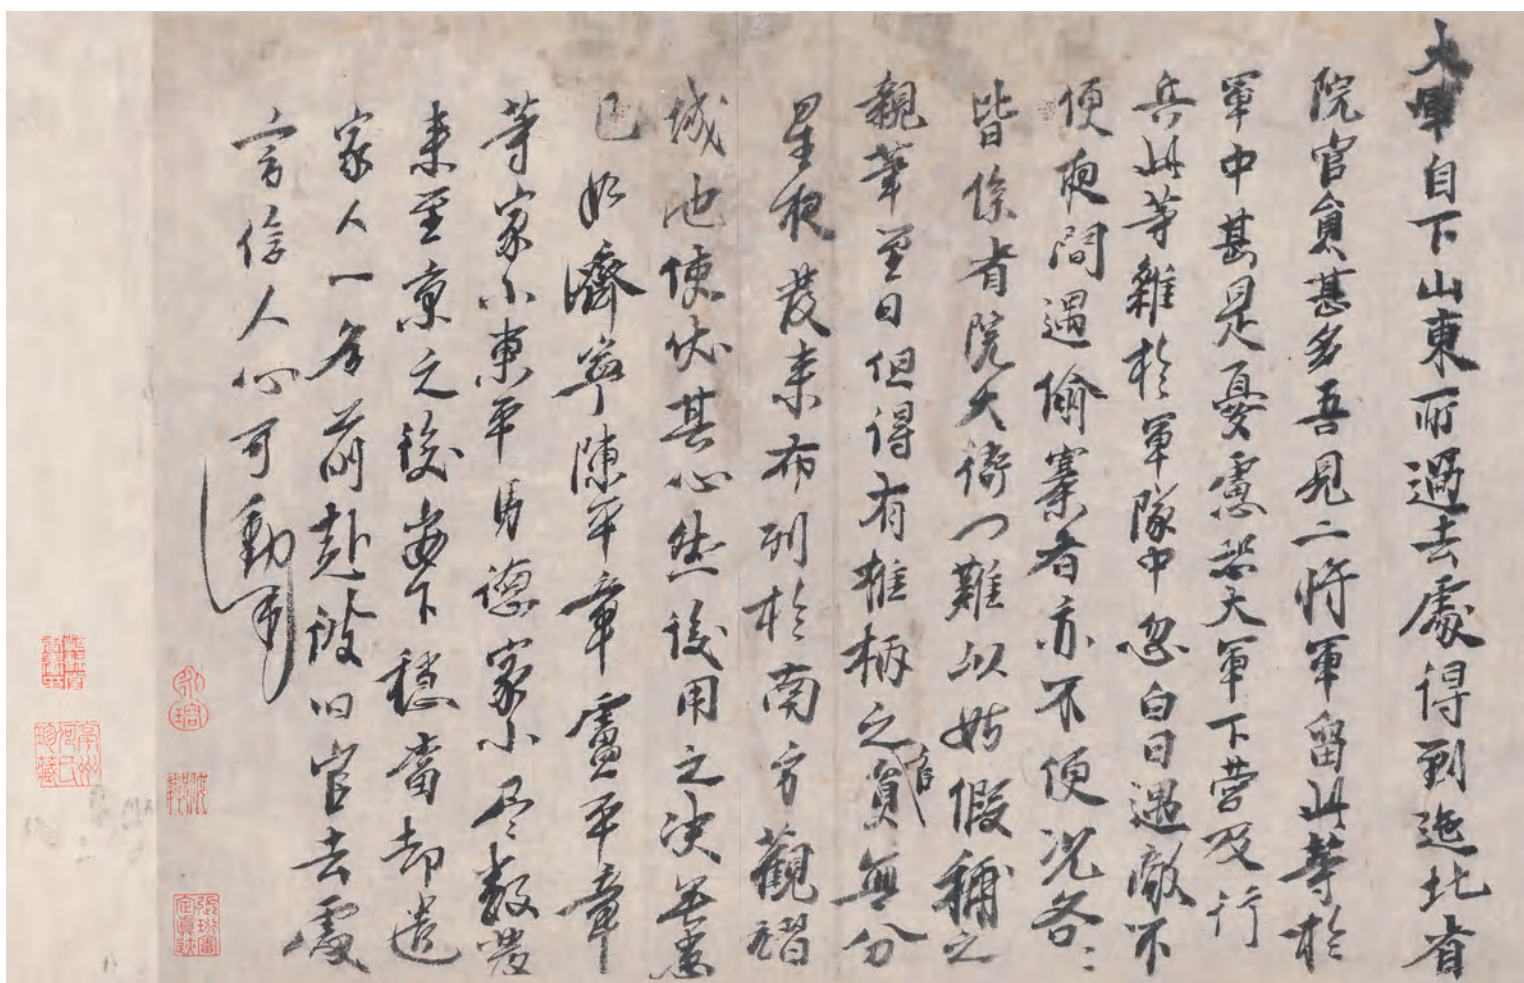 大軍自下山東所過去處得到迤北省
院官員甚多吾見二将軍留此等於
軍中甚是憂慮恐大軍下營及行
兵此等雜於軍隊中忽白日遇敵不
便夜間遇偷寨者亦不便況各〻
皆係省院大衙門難以姑假補之
親筆至日但得有椎柄之官員無分
星夜發来布列於南方觀習
城池使伏其心然後用之决無患
已如濟寧陳平章盧平章
等家小東平馬德家小尽數發
来至京之後安下穩當却遣
家人一名前赴彼旧官去處
言信人心可動